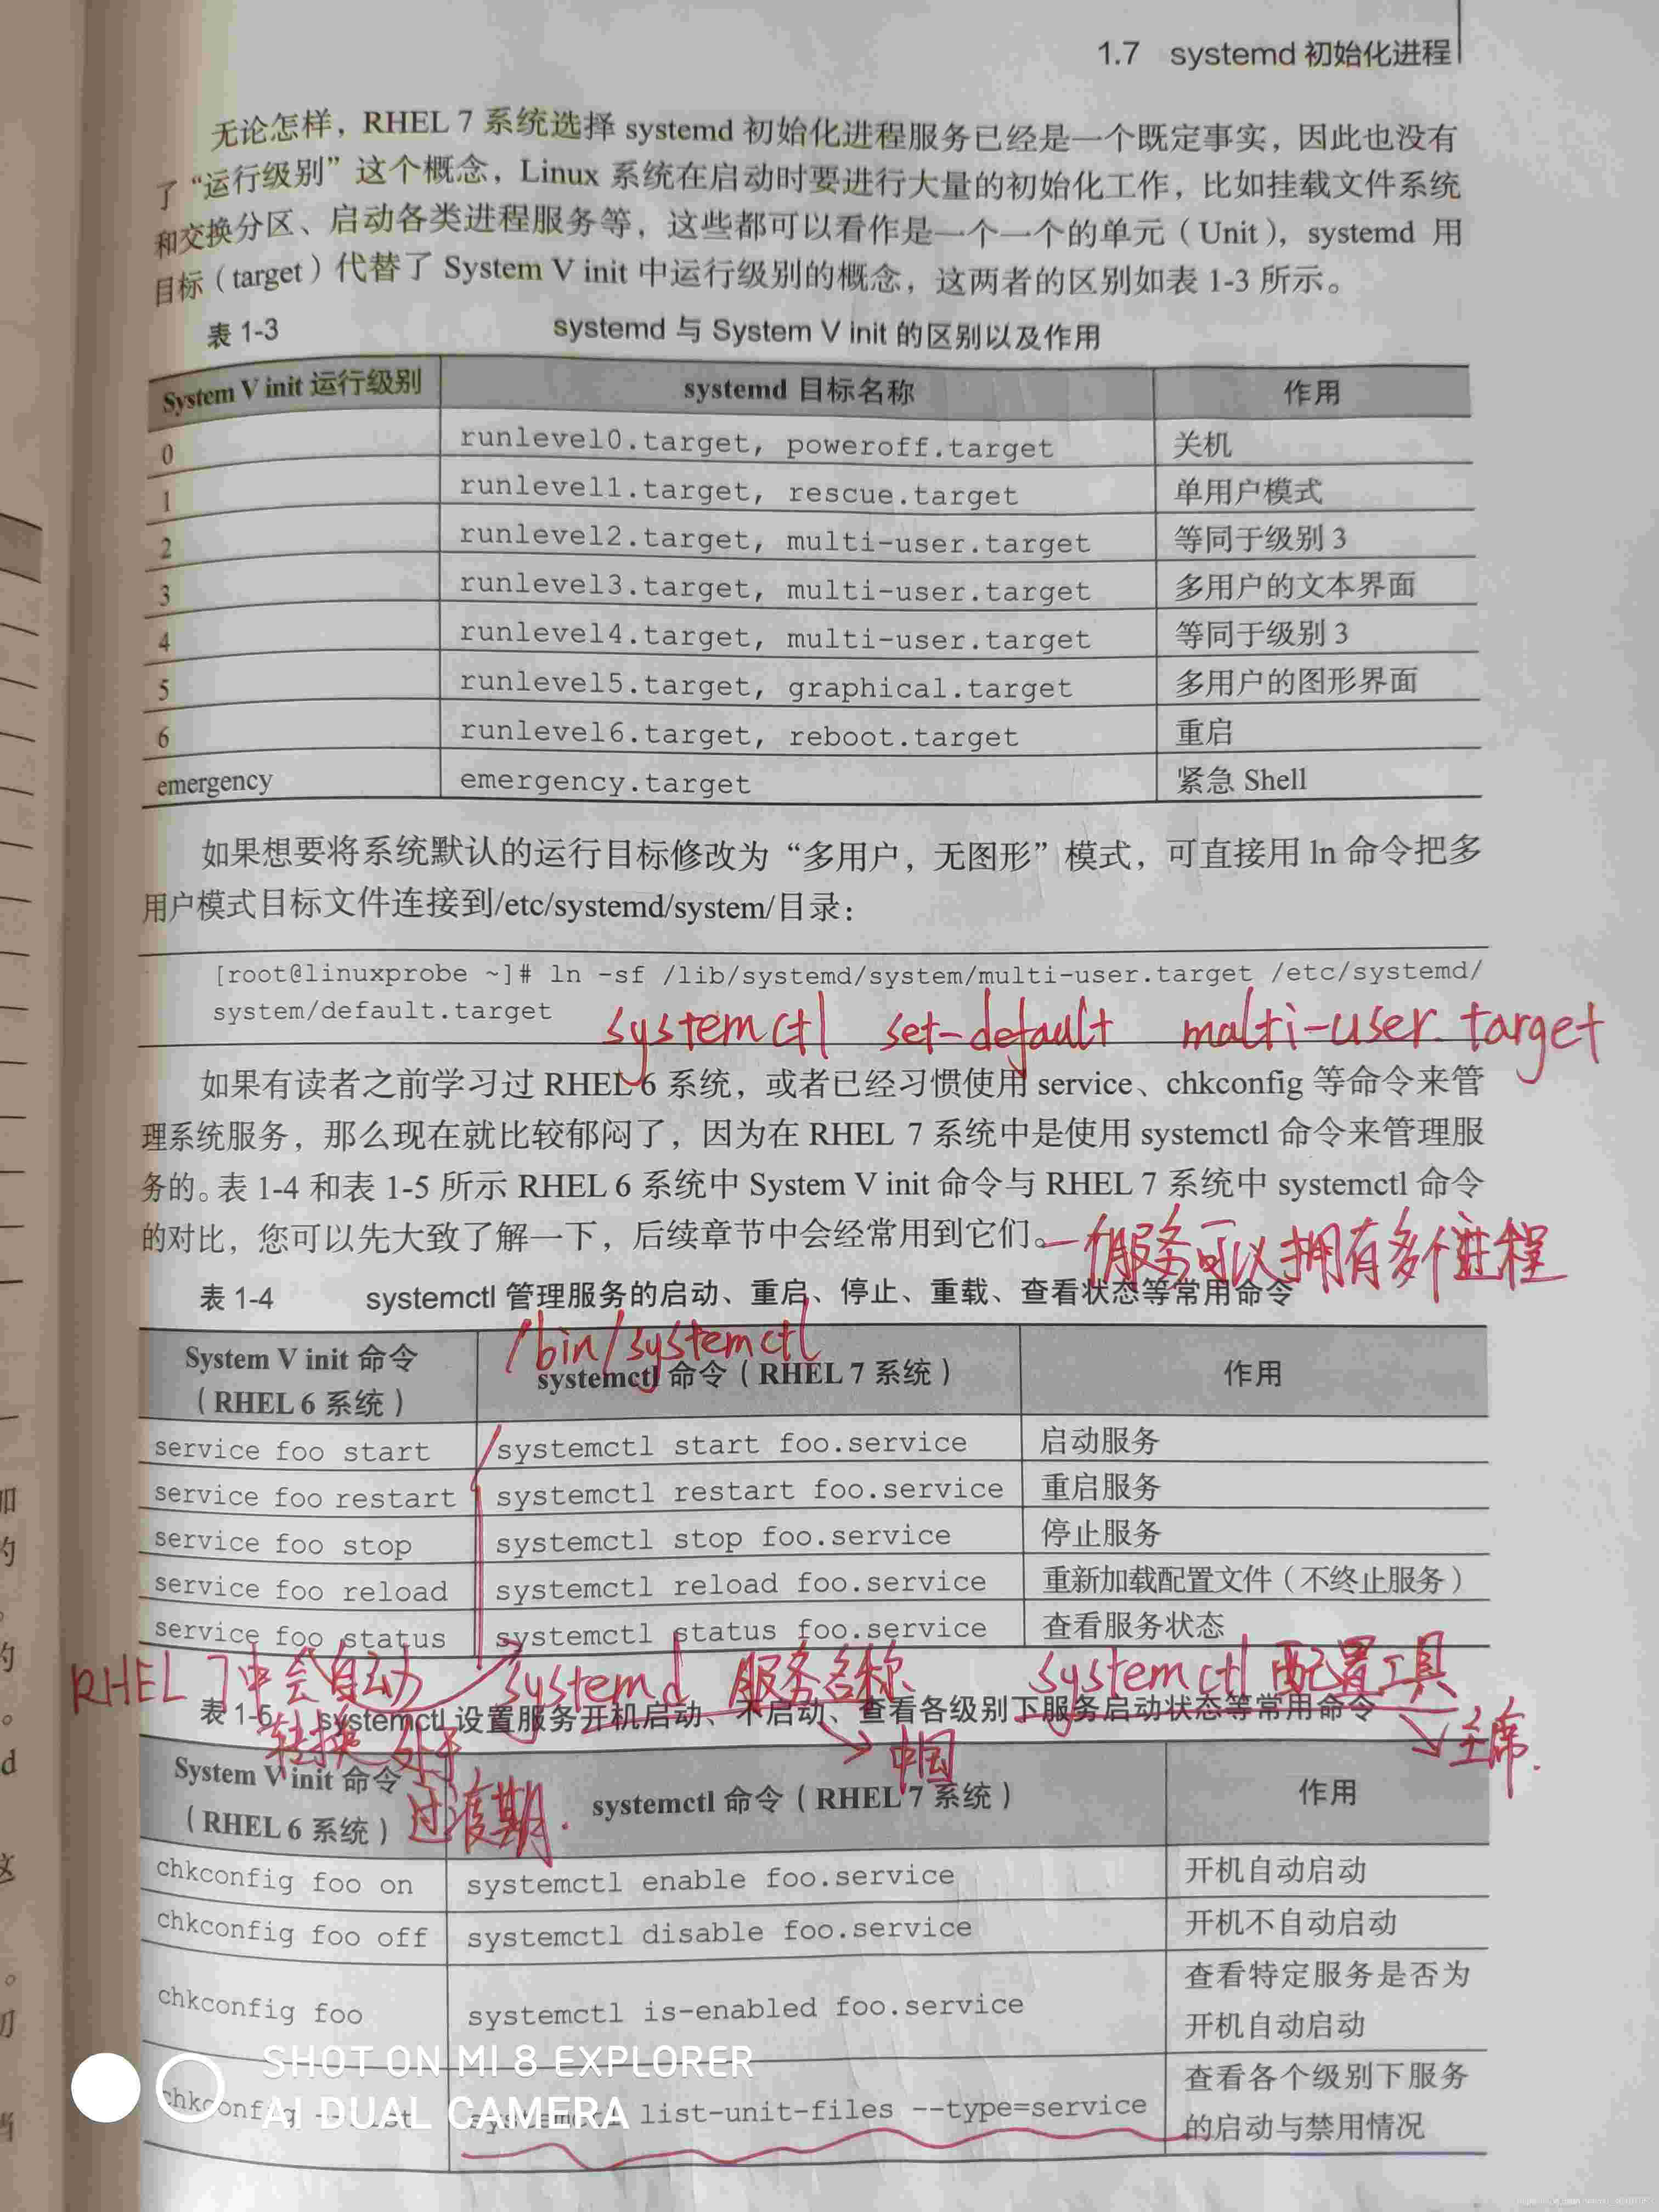 1.7 systemd 初始化进程
无论怎样，RHEL 7 系统选择 systemd 初始化进程服务已经是一个既定事实，因此也没有
了“运行级别”这个概念，Linux 系统在启动时要进行大量的初始化工作，比如挂载文件系统
和交换分区、启动各类进程服务等，这些都可以看作是一个一个的单元（Unit），systemd 用
目标（target）代替了 System V init 中运行级别的概念，这两者的区别如表 1-3 所示。
表 1-3 systemd 与 System V init 的区别以及作用
System V init 运行级别 systemd 目标名称 作用
0 runlevel0.target, poweroff.target 关机
1 runlevel1.target, rescue.target 单用户模式
2 runlevel2.target, multi-user.target 等同于级别 3
3 runlevel3.target, multi-user.target 多用户的文本界面
4 runlevel4.target, multi-user.target 等同于级别 3
5 runlevel5.target, graphical.target 多用户的图形界面
6 runlevel6.target, reboot.target 重启
emergency emergency.target 紧急 Shell
如果想要将系统默认的运行目标修改为“多用户，无图形”模式，可直接用 ln 命令把多
用户模式目标文件连接到/etc/systemd/system/目录：
[root@linuxprobe ~]# ln -sf /lib/systemd/system/multi-user.target /etc/systemd/
system/default.target
systemctl set-default malti-user.target
如果有读者之前学习过 RHEL 6 系统，或者已经习惯使用 service、chkconfig 等命令来管
理系统服务，那么现在就比较郁闷了，因为在 RHEL 7 系统中是使用 systemctl 命令来管理服
务的。表 1-4 和表 1-5 所示 RHEL 6 系统中 System V init 命令与 RHEL 7 系统中 systemctl 命令
的对比，您可以先大致了解一下，后续章节中会经常用到它们。
一个服务可以拥有多个进程
表 1-4 systemctl 管理服务的启动、重启、停止、重载、查看状态等常用命令
/bin/systemctl
System V init 命令 systemctl 命令（RHEL 7 系统） 作用
（RHEL 6 系统）
service foo start systemctl start foo.service 启动服务
service foo restart systemctl restart foo.service 重启服务
service foo stop systemctl stop foo.service 停止服务
service foo reload systemctl reload foo.service 重新加载配置文件（不终止服务）
service foo status systemctl status foo.service 查看服务状态
RHEL 7中会自动 systemd 服务名称 systemctl 配置工具
表 1-5 systemctl 设置服务开机启动、不启动、查看各级别下服务启动状态等常用命令
转换 处于 中国 主席.
过渡期.
System V init 命令 systemctl 命令（RHEL 7 系统） 作用
（RHEL 6 系统）
chkconfig foo on systemctl enable foo.service 开机自动启动
chkconfig foo off systemctl disable foo.service 开机不自动启动
chkconfig foo systemctl is-enabled foo.service 查看特定服务是否为
开机自动启动
chkconfig --list systemctl list-unit-files --type=service 查看各个级别下服务
的启动与禁用情况
SHOT ON MI 8 EXPLORER
AI DUAL CAMERA